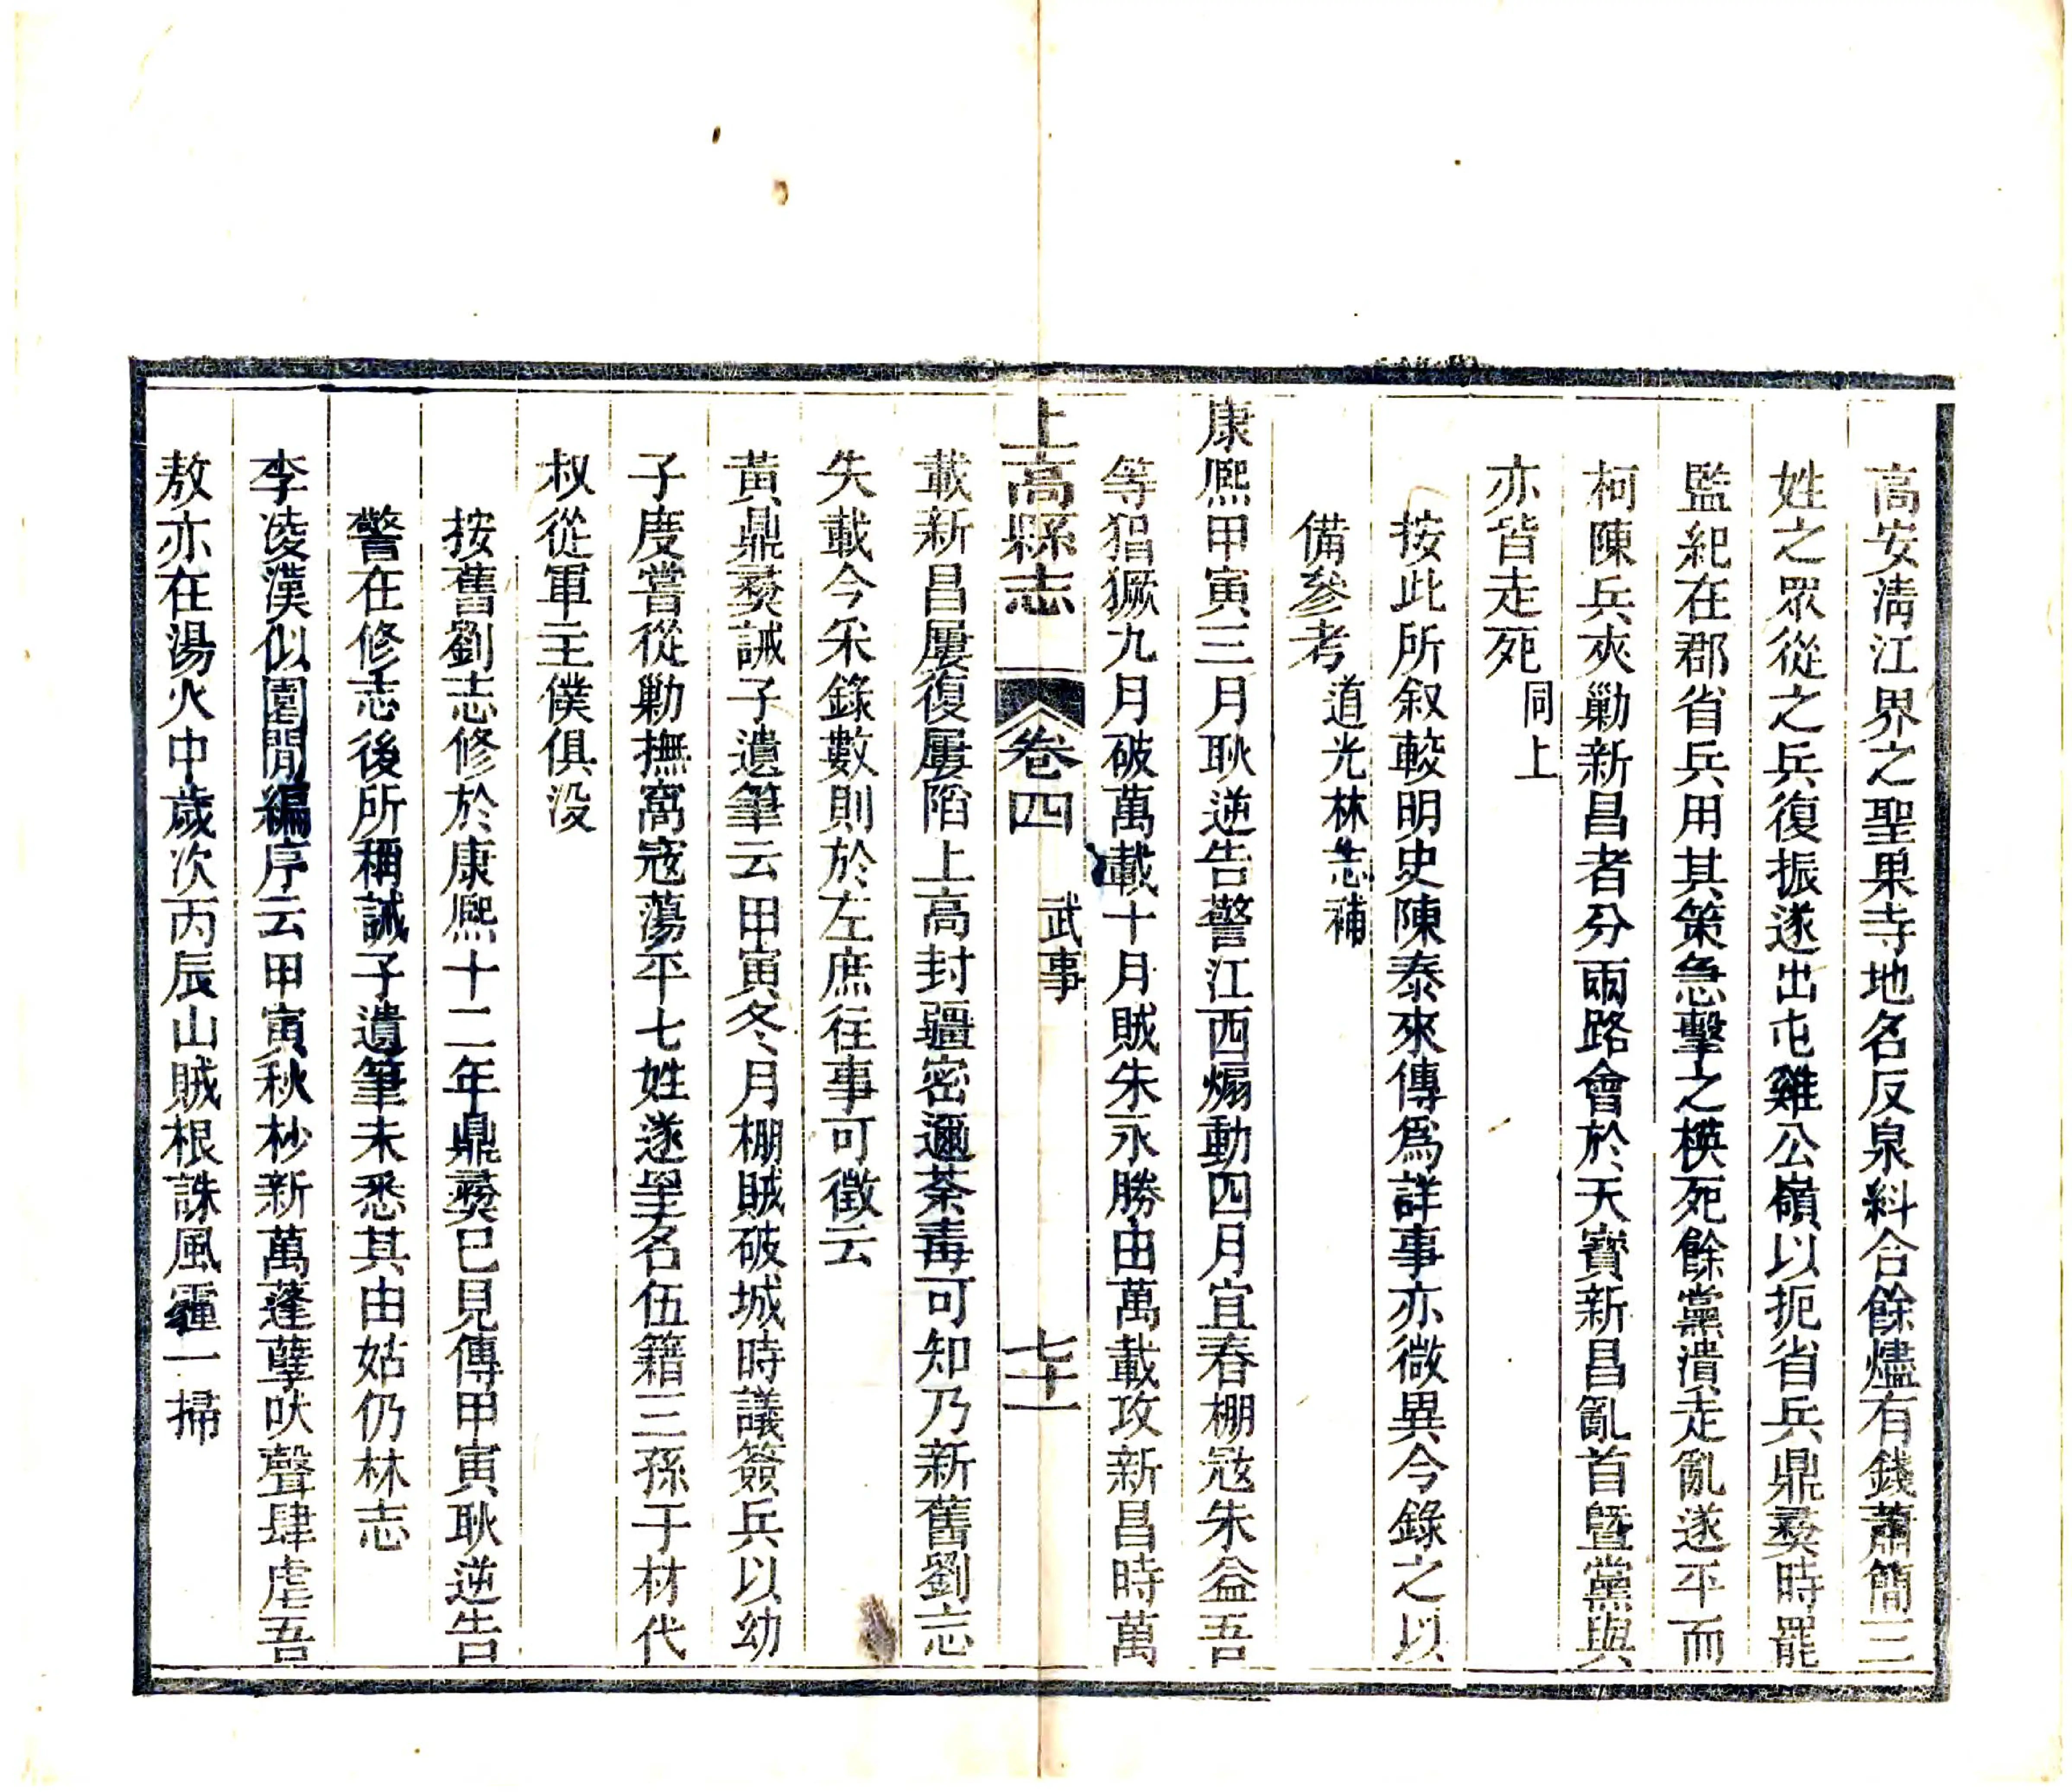 高安淸江界之聖果寺地名反泉糾合餘燼有錢蕭簡三
姓之眾從之兵復振遂出屯雞公嶺以扼省兵鼎彝時罷
監紀在郡省兵用其策急擊之模死餘黨潰走亂遂平而
柯陳兵夾勦新昌者分兩路會於天寶新昌亂首暨黨與
亦皆走死同上
按此所叙較明史陳泰來傳爲詳事亦微異今錄之以
備參考道光林志補
康熙甲寅三月耿逆告警江西煽動四月宜春棚宼朱益吾
等猖獗九月破萬載十月賊朱永勝由萬載攻新昌時萬
上高縣志 卷四 武事 七十一
載新昌屢復屢陷上高封疆密邇荼毒可知乃新舊劉志
失載今采錄數則於左庶往事可徵云
黃鼎彝誡子遺筆云甲寅冬月棚賊破城時議簽兵以幼
子度嘗從勦撫窩寇蕩平七姓遂呈名伍籍三孫于材代
叔從軍主僕俱没
按舊劉志修於康熙十二年鼎彝已見傳甲寅耿逆告
警在修志後所稱誡子遺筆未悉其由姑仍林志
李凌漢似園閒編序云甲寅秋杪新萬蓬孽吠聲肆虐吾
敖亦在湯火中歲次丙辰山賊根誅風霾一掃